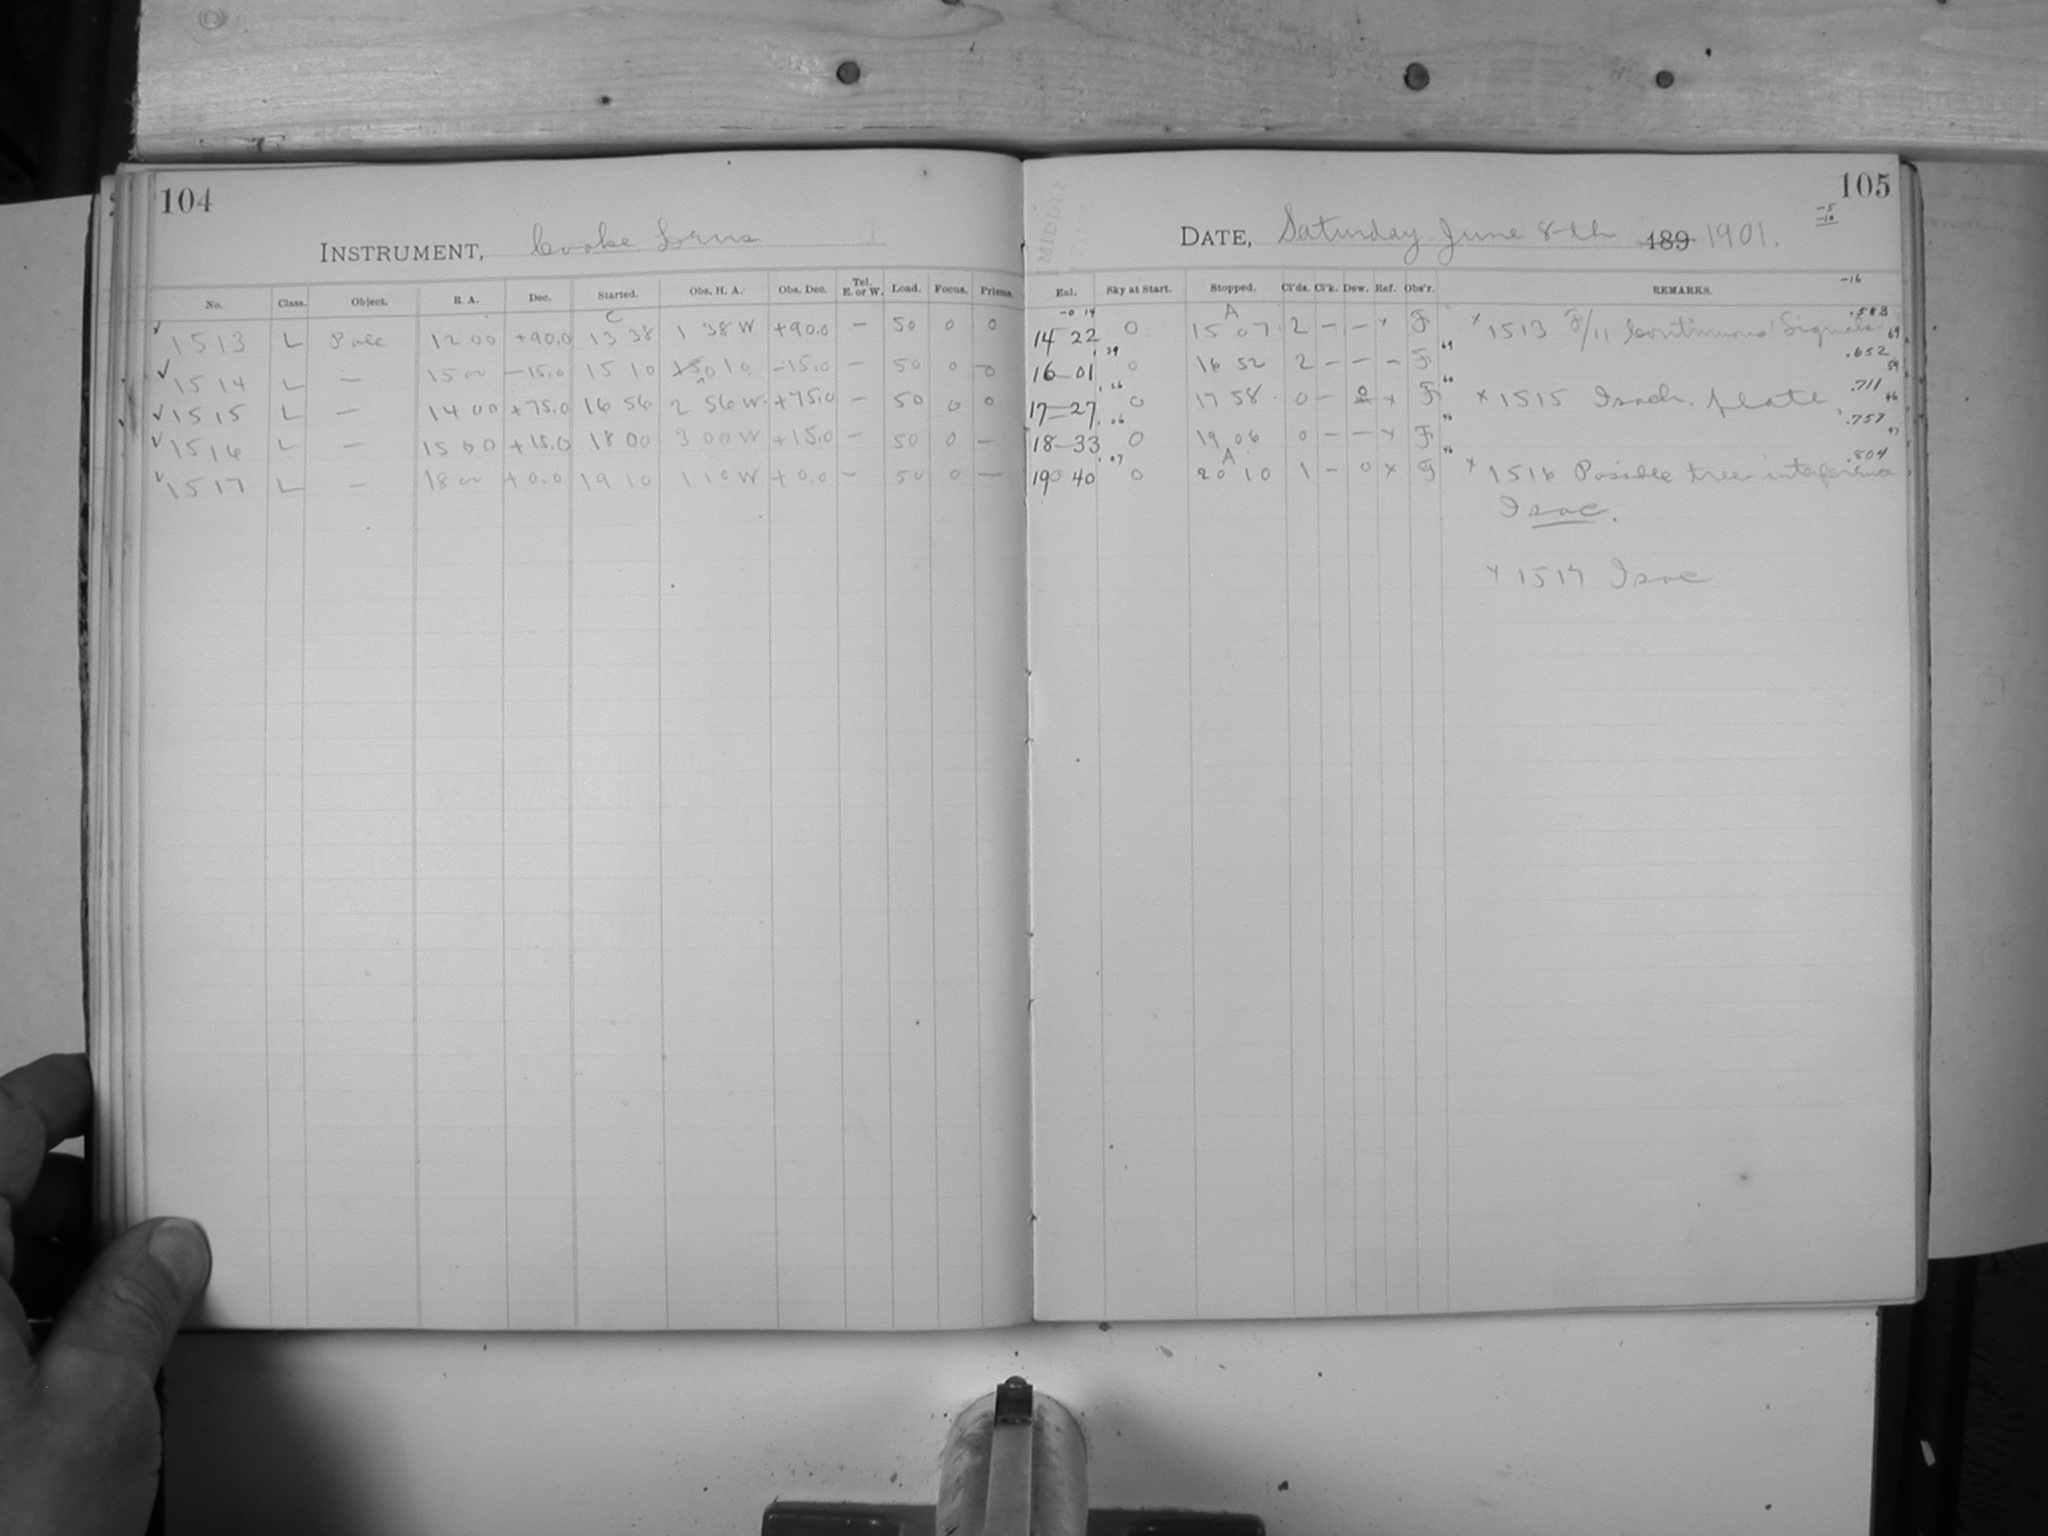 104
INSTRUMENT, Cooke Lens
No. Class. Object. R. A. Dec. Started. Obs. H. A. Obs. Dec. Tel. E. or W. Load. Focus. Prisms.
C
✓ 1513 L Pole 12 00 +90.0 13 38 1 38 W +90.0 — 50 0 0
✓ 1514 L — 15 00 —15.0 15 10 0 10 —15.0 — 50 0 0
✓ 1515 L — 14 00 +75.0 16 56 2 56 W. +75.0 — 50 0 0
✓ 1516 L — 15 00 +15.0 18 00 3 00 W +15.0 — 50 0 —
✓ 1517 L — 18 00 +0.0 19 10 1 10 W +0.0 — 50 0 —
105
DATE, Saturday June 8th 189 1901.
-5
-10
-16
Enl. Sky at Start. Stopped. Cl'ds. Cl'k. Dew. Ref. Obs'r. REMARKS.
-0 14 A .583
14 22 0 15 07 2 — — x F x 1513 F/11 Continuous Signals 69
.39 69 .652
16—01 0 16 52 2 — — — F 59
.26 60 .711
17—27 0 17 58 0 — 0 x F x 1515 Isoch. plate 46
.06 46 .757
18—33 0 19 06 0 — — x F 47
.07 A 46 .804
19 40 0 20 10 1 — 0 x F x 1516 Possible tree interference
Isoc.
x 1517 Isoc